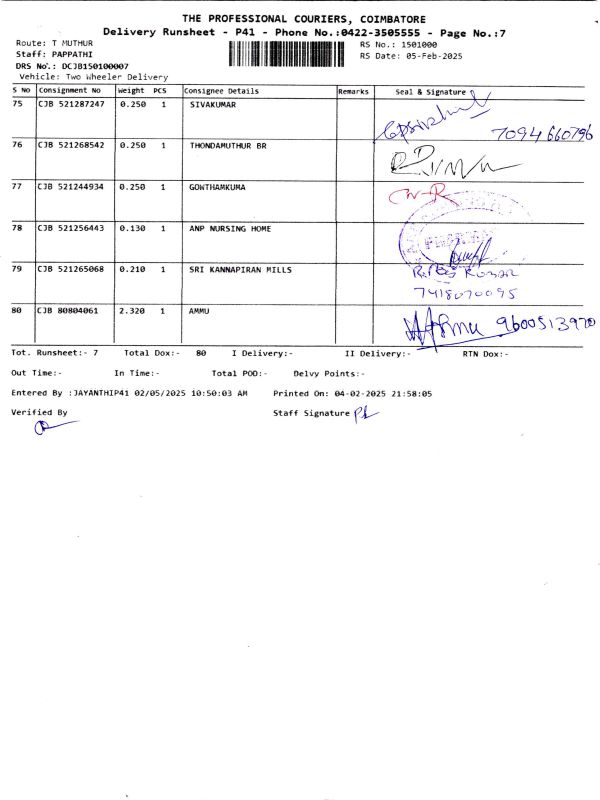 THE PROFESSIONAL COURIERS, COIMBATORE
Delivery Runsheet - P41 - Phone No.:0422-3505555 - Page No.:7
Route: T MUTHUR RS No.: 1501000
Staff: PAPPATHI RS Date: 05-Feb-2025
DRS No.: DCJB150100007
Vehicle: Two Wheeler Delivery
S No Consignment No Weight PCS Consignee Details Remarks Seal & Signature
75 CJB 521287247 0.250 1 SIVAKUMAR
7094660796
76 CJB 521268542 0.250 1 THONDAMUTHUR BR
77 CJB 521244934 0.250 1 GOWTHAMKUMA
78 CJB 521256443 0.130 1 ANP NURSING HOME
79 CJB 521265068 0.210 1 SRI KANNAPIRAN MILLS
7418070095
80 CJB 80804061 2.320 1 AMMU
9600513970
Tot. Runsheet:- 7 Total Dox:- 80 I Delivery:- II Delivery:- RTN Dox:-
Out Time:- In Time:- Total POD:- Delvy Points:-
Entered By :JAYANTHIP41 02/05/2025 10:50:03 AM Printed On: 04-02-2025 21:58:05
Verified By Staff Signature